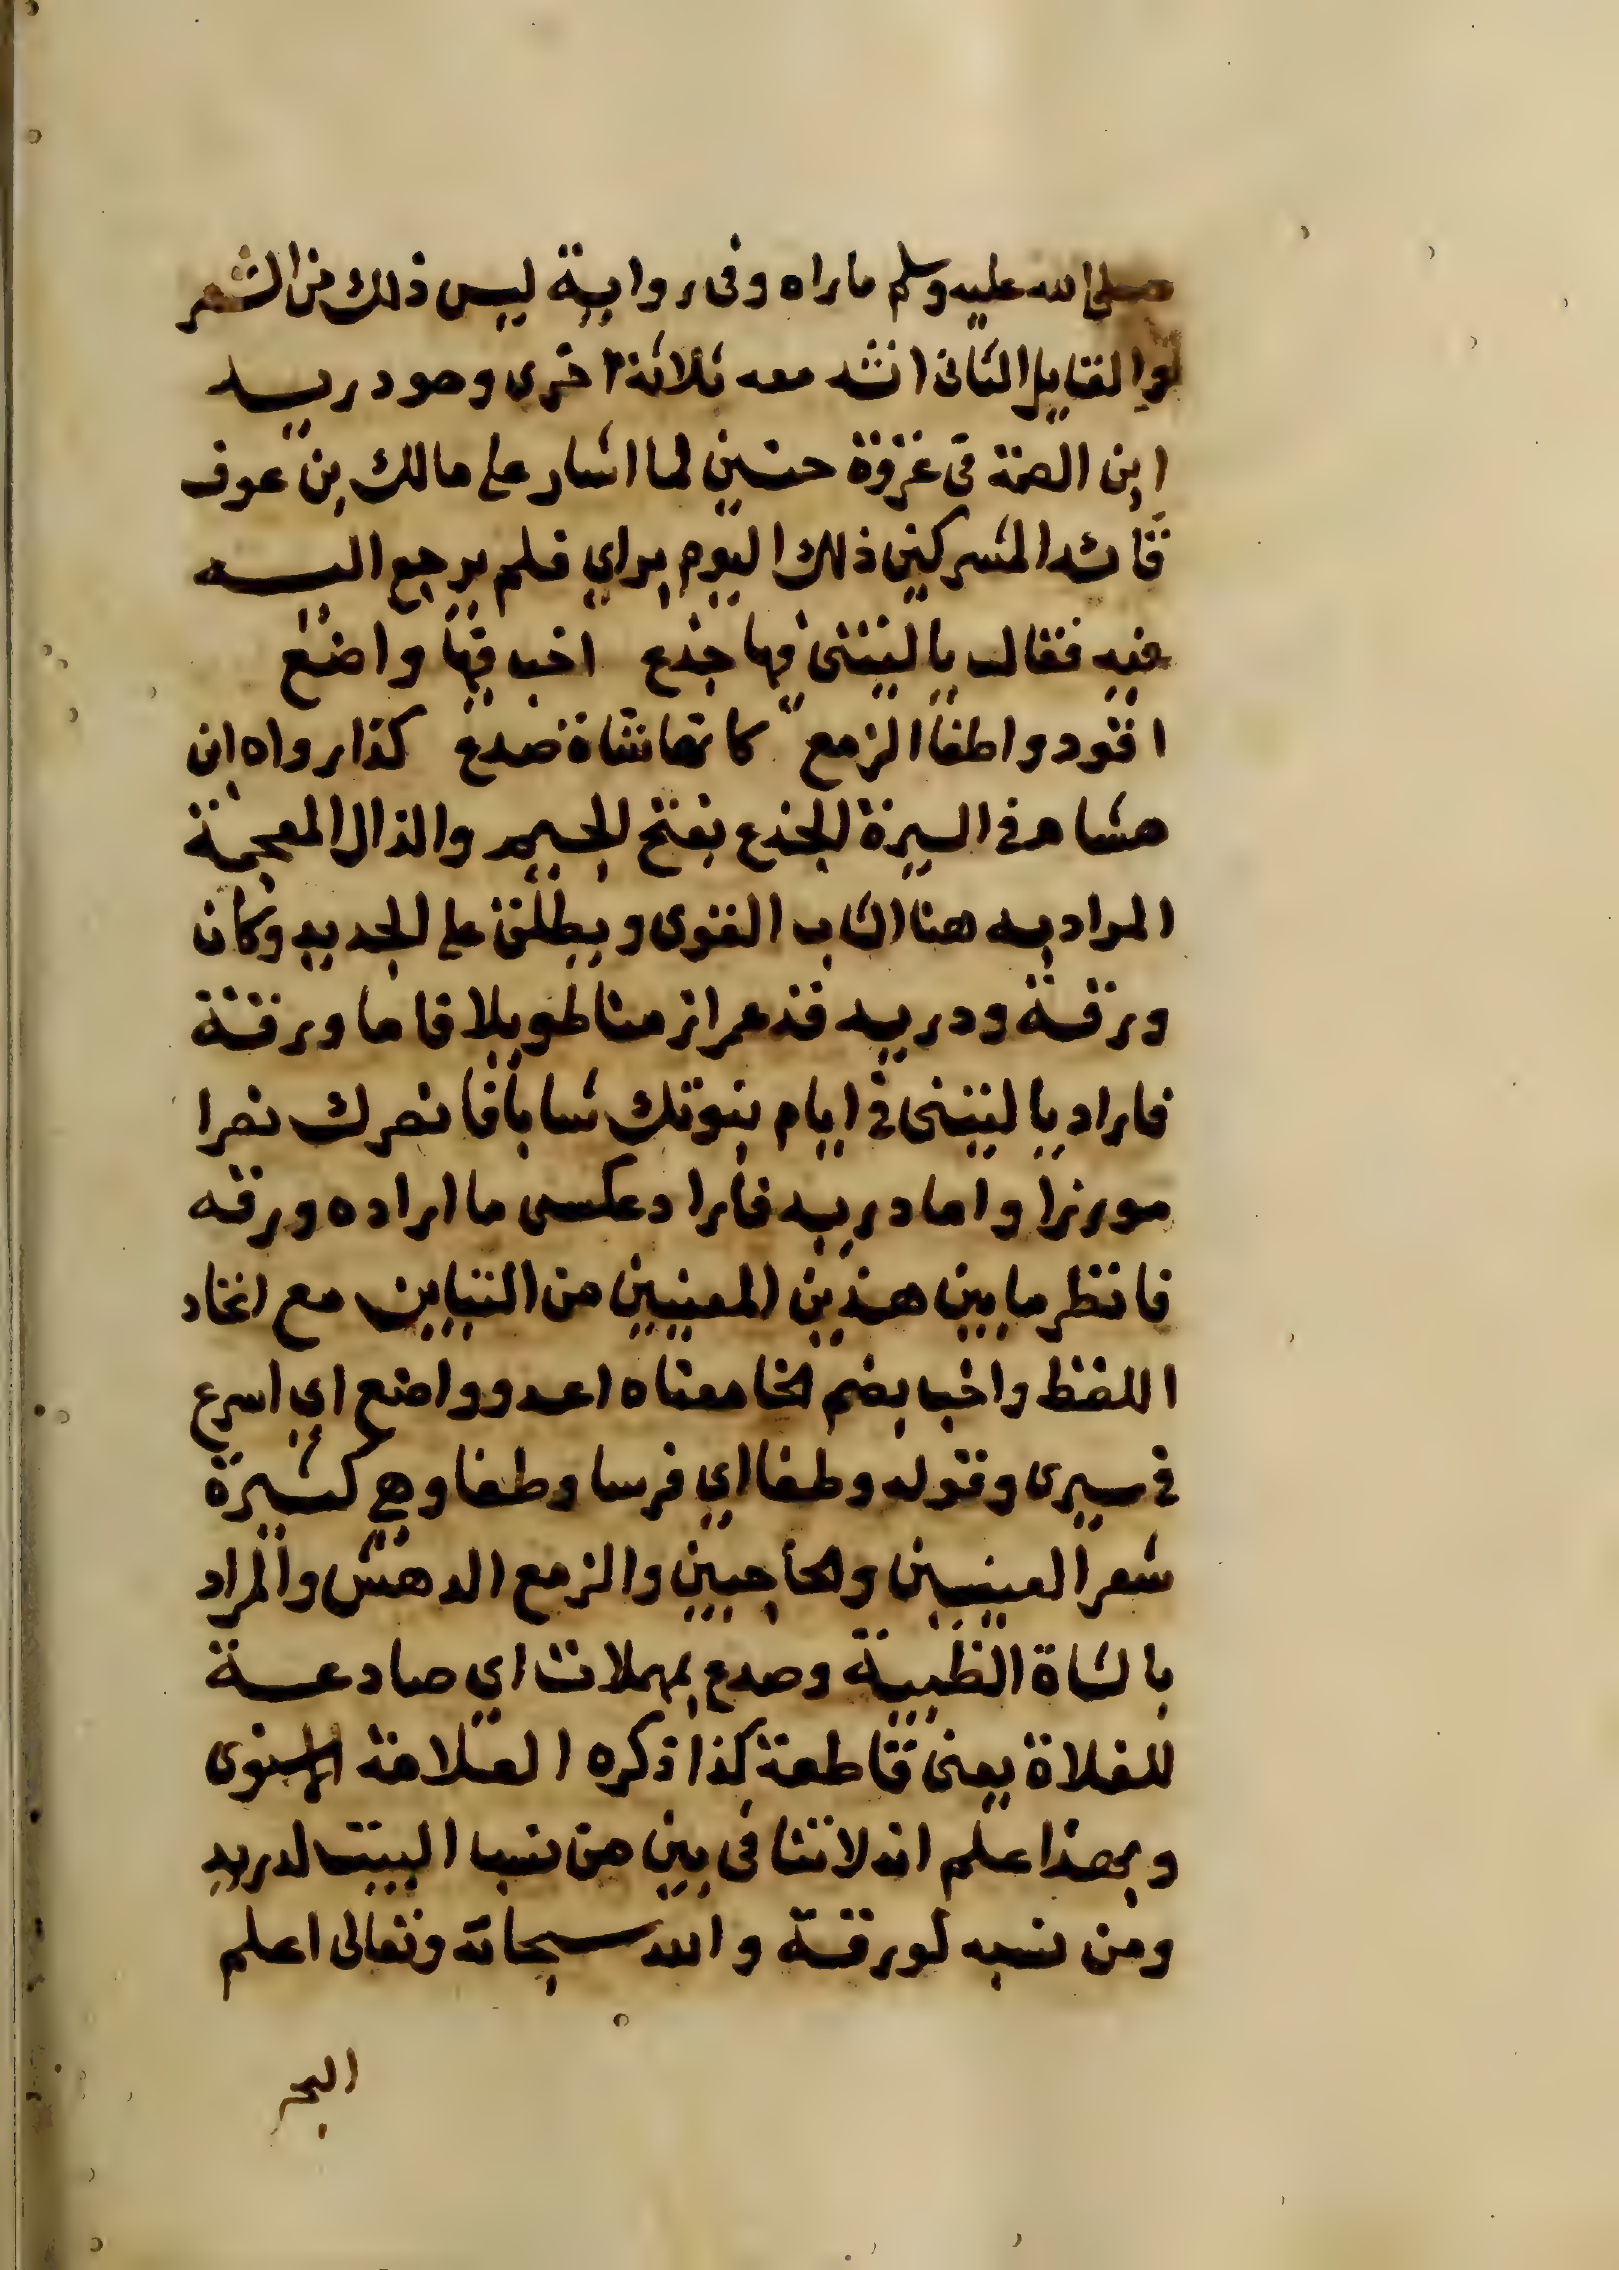 صلى الله عليه وسلم ماراه وفى رواية ليس ذلك من الشعر
والقايل الثانى انشد معه ثلاثة اخرى وهو دريد
ابن الصمة فى غزوة حنين لما اشار على مالك بن عوف
قائد المشركين ذلك اليوم براي فلم يرجع اليه
فيه فقال يا ليتنى فيها جذع اخب فيها واضع
اقود وطفا الزمع كانها شاة صدع كذا رواه ابن
هشام فى السيرة الجذع بفتح الجيم والذال المعجمة
المراد به هنا الشاب القوى ويطلق على الجديد وكان
ورقة ودريد قد عمرا زمنا طويلا فاما ورقة
فاراد يا ليتنى فى ايام نبوتك شابا فانصرك نصرا
موزرا واما دريد فاراد عكس ما اراده ورقه
فانظر ما بين هذين المعنيين من التباين مع اتحاد
اللفظ واخب بضم الخا معناه اعدو واضع اي اسرع
فى سيرى وقوله وطفا اي فرسا وطفا وهي كثيرة
شعر العينين والحاجبين والزمع الدهش والمراد
بالشاة الظبية وصدع بمهملات اي صادعة
للفلاة يعنى قاطعة كذا ذكره العلامة الاسنوى
وبهذا علم انه لا تنافى بين من نسب البيت لدريد
ومن نسبه لورقة والله سبحانه وتعالى اعلم
البحر